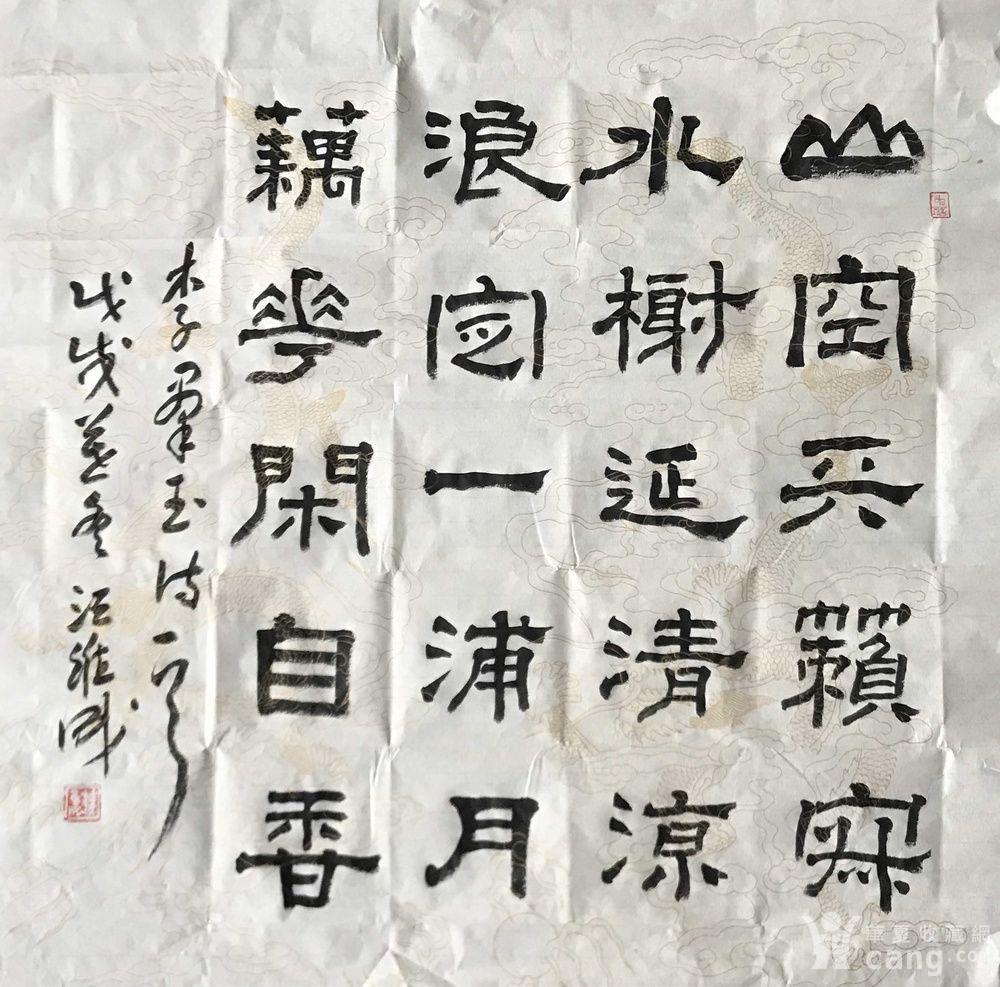 山空天籟寂
水榭延清涼
浪定一浦月
藕花閑自香
李羣玉诗一首
戊戌冬汪
華夏收藏網
cang.com